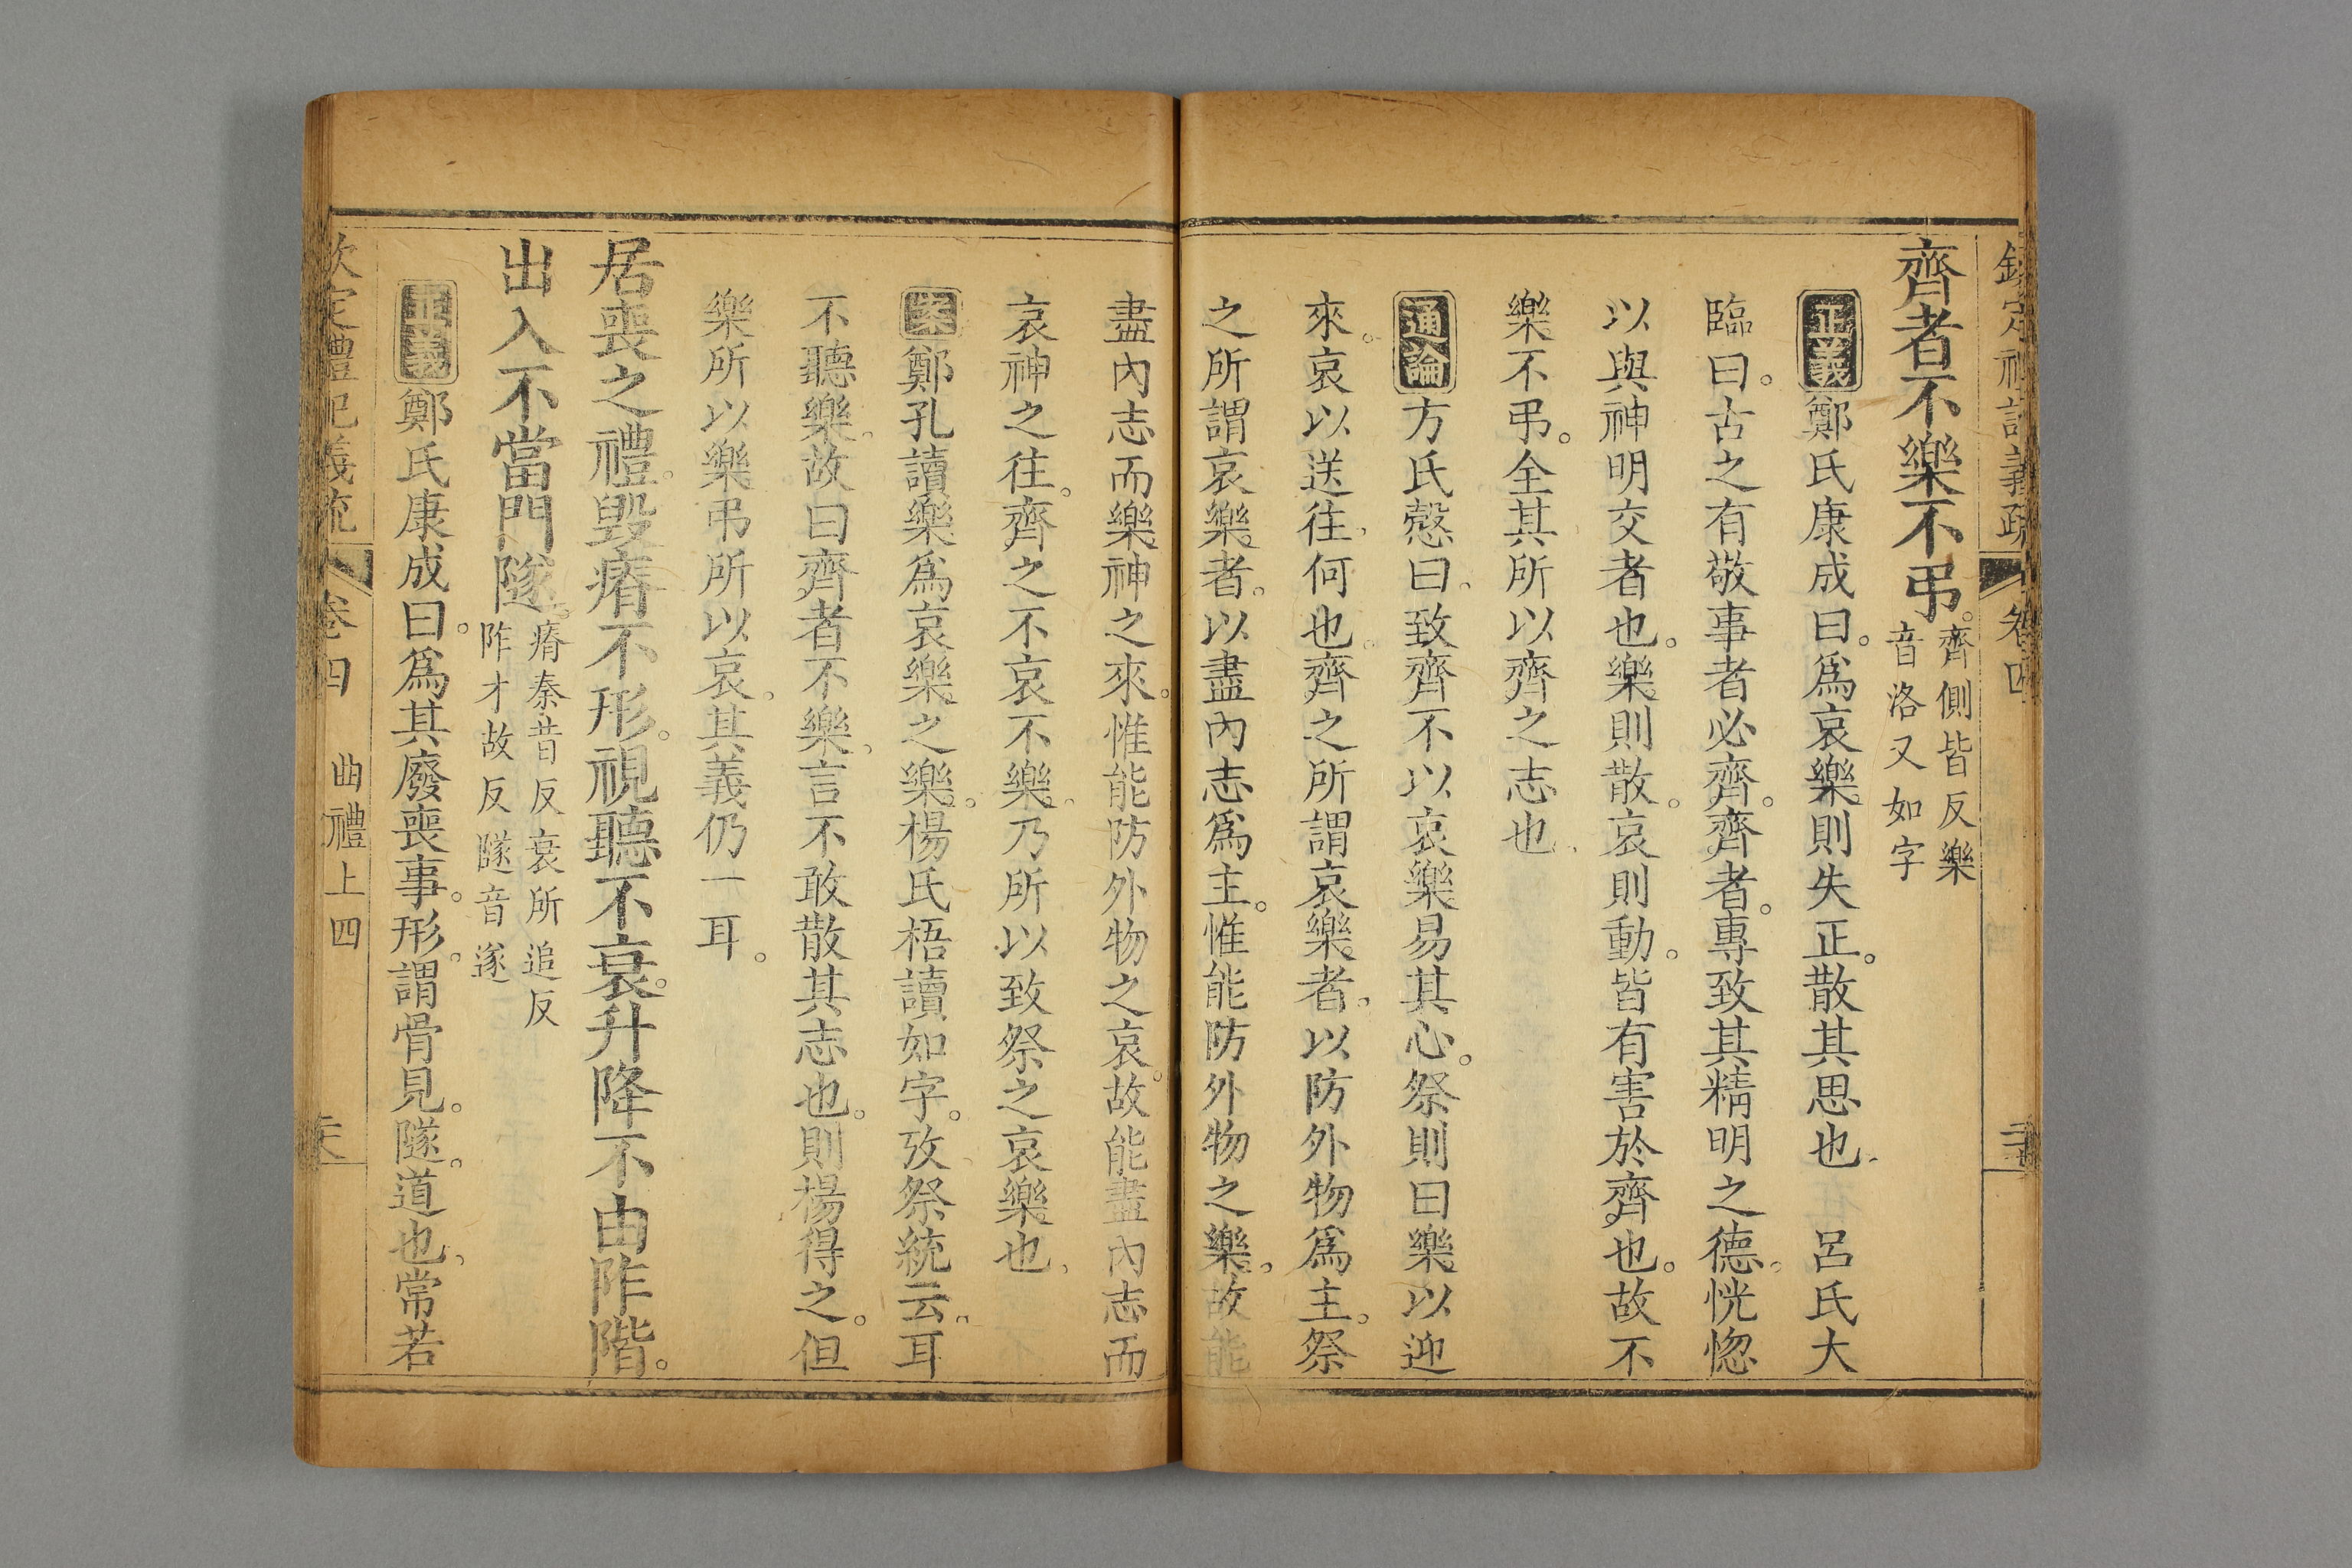 欽定禮記義疏 卷四
齊者不樂不弔。齊側皆反樂
音洛又如字
正義鄭氏康成曰。爲哀樂則失正。散其思也 呂氏大
臨曰。古之有敬事者必齊。齊者。專致其精明之德。恍惚
以與神明交者也。樂則散。哀則動。皆有害於齊也。故不
樂不弔。全其所以齊之志也
通論方氏慤曰。致齊不以哀樂易其心。祭則曰樂以迎
來。哀以送往。何也。齊之所謂哀樂者。以防外物爲主。祭
之所謂哀樂者。以盡內志爲主。惟能防外物之樂。故能
盡內志而樂神之來。惟能防外物之哀。故能盡內志而
哀神之往。齊之不哀不樂。乃所以致祭之哀樂也。
案鄭孔讀樂爲哀樂之樂。楊氏梧讀如字。攷祭統云。耳
不聽樂。故曰齊者不樂。言不敢散其志也。則楊得之。但
樂所以樂弔所以哀。其義仍一耳。
居喪之禮。毀瘠不形。視聽不衰。升降不由阼階。
出入不當門隧。瘠秦昔反衰所追反
阼才故反隧音遂
正義鄭氏康成曰。爲其廢喪事。形。謂骨見。隧。道也。常若
欽定禮記義疏 卷四 曲禮上四